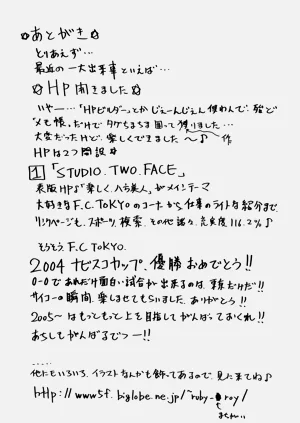 ☆あとがき☆
とりあえず…
最近の一大出来事といえば…
☆HP開きました☆
いやー…「HPビルダー」とかじぇーんじぇん使わんで、殆ど
"メモ帳"だけでタグちまちま囲って作りました…
大変だったけど、楽しくできました〜♪ 作
HPは2つ開設
1「STUDIO.TWO.FACE」
表版HP♪「楽しく、八方美人」がメインテーマ
大好きなF.C.TOKYOのコーナーから仕事のライトな紹介まで
リンクページも、スポーツ、検索、その他諸々、充実度116.2%♪
そうそう、F.C.TOKYO.
2004 ナビスコカップ、優勝おめでとう!!
0-0であれだけ面白い試合が出来るのは、東京だけだ!!
サイコーの瞬間、楽しませてもらいました、ありがとう!!
2005〜はもっともっと上を目指してがんばっておくれ!!
あちしもがんばるでつー!!
.....
他にもいろいろ、イラストなんかも飾ってあるので、見に来てね♪
http://www5f.biglobe.ne.jp/~ruby-roy/